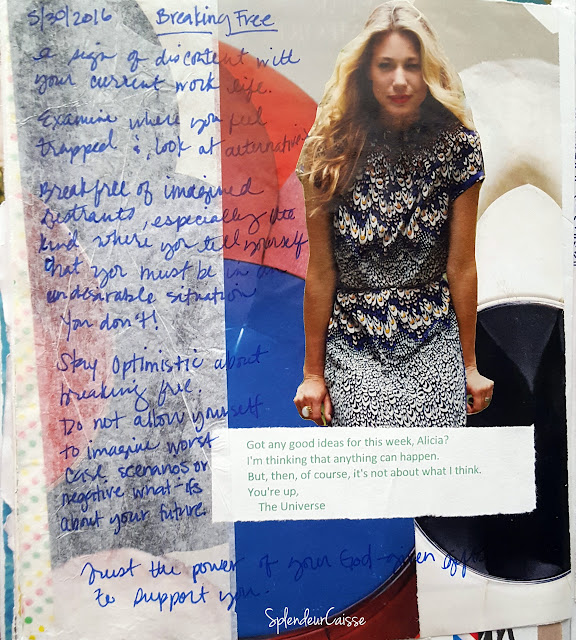 5/30/2016 Breaking Free
A sign of discontent with
your current work life.
Examine where you feel
trapped & look at alternatives
Break free of imagined
restraints, especially the
kind where you tell yourself
that you must be in an
undesirable situation
You don't!
Stay optimistic about
breaking free.
Do not allow yourself
to imagine worst
case scenarios or
negative what-ifs
about your future.
Trust the power of your God-given
to support you.
Got any good ideas for this week, Alicia?
I'm thinking that anything can happen.
But, then, of course, it's not about what I think.
You're up,
The Universe
SplendeurCaisse